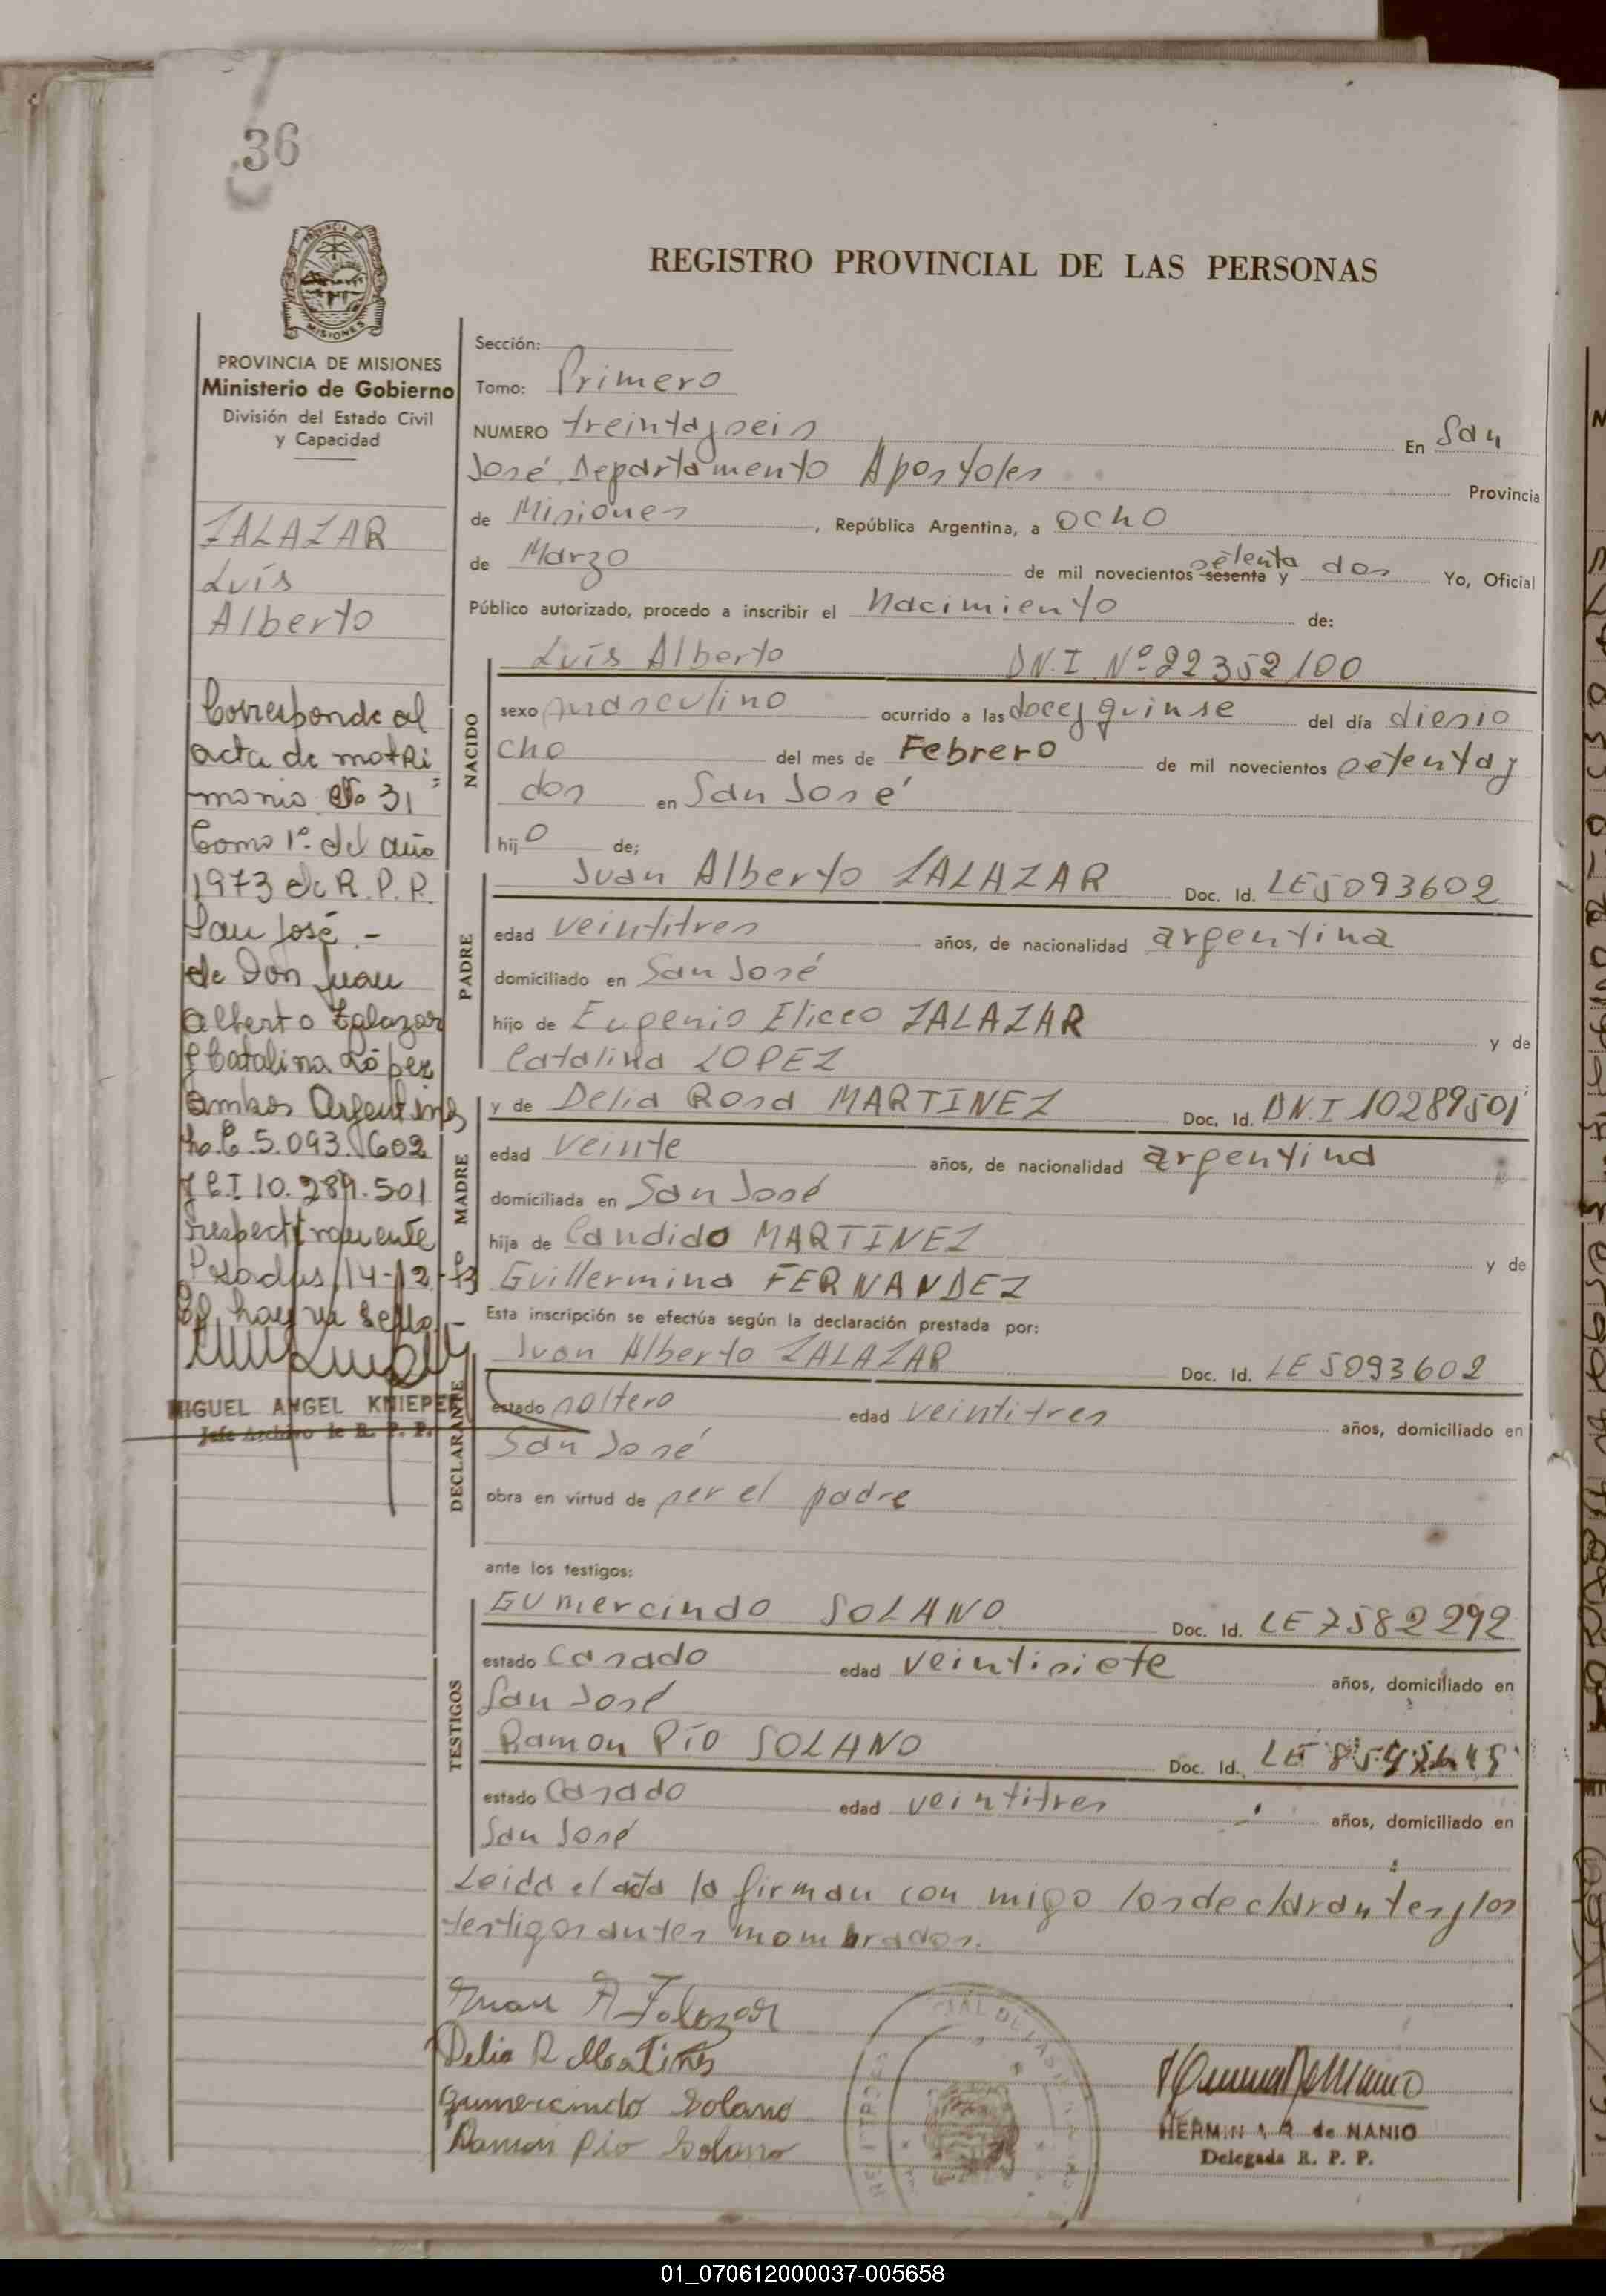 36
REGISTRO PROVINCIAL DE LAS PERSONAS
PROVINCIA DE MISIONES
Ministerio de Gobierno
División del Estado Civil
y Capacidad
ZALAZAR
Luís
Alberto
Corresponde al
acta de matri
monio No 31
Tomo 1º del año
1973 de R.P.P.
San José.-
de Don Juan
Alberto Zalazar
y Catalina López
ambos Argentinos
5.093.602
y C.I 10.289.501
respectivamente
Posadas, 14-12-73
hay un sello.-
MIGUEL ANGEL KNIEPER
Jefe Archivo de R. P. P.
Sección:
Tomo: Primero
NUMERO treintayseis En San
José Departamento Apostoles Provincia
de Misiones, República Argentina, a ocho
de Marzo de mil novecientos sesenta setenta y dos Yo, Oficial
Público autorizado, procedo a inscribir el Nacimiento de:
NACIDO
Luís Alberto DN.I Nº 22352100
sexo masculino ocurrido a las docey quinse del día diesio
cho del mes de Febrero de mil novecientos setentay
dos en San José
hijo de:
PADRE
Juan Alberto ZALAZAR Doc. Id. LE5093602
edad veintitres años, de nacionalidad argentina
domiciliado en San José
hijo de Eugenio Eliceo ZALAZAR y de
Catalina LOPEZ
MADRE
y de Delia Rosa MARTINEZ Doc. Id. DN.I 10289501
edad veinte años, de nacionalidad argentina
domiciliada en San José
hija de Candido MARTINEZ y de
Guillermina FERNANDEZ
Esta inscripción se efectúa según la declaración prestada por:
DECLARANTE
Juan Alberto ZALAZAR Doc. Id. LE5093602
estado soltero edad veintitres años, domiciliado en
San José
obra en virtud de ser el padre
ante los testigos:
TESTIGOS
Gumercindo SOLANO Doc. Id. LE7582292
estado Casado edad veintisiete años, domiciliado en
San José
Ramon Pío SOLANO Doc. Id. LE
estado Casado edad veintitres años, domiciliado en
San José
Leida el acta la firman con migo losdeclarantesylos
testigosantes mombrados.
Juan A Zalazar
Delia R Martines
Gumercindo Solano
Ramon Pio Solano
HERMIN A R de NANIO
Delegada R. P. P.
01_070612000037-005658